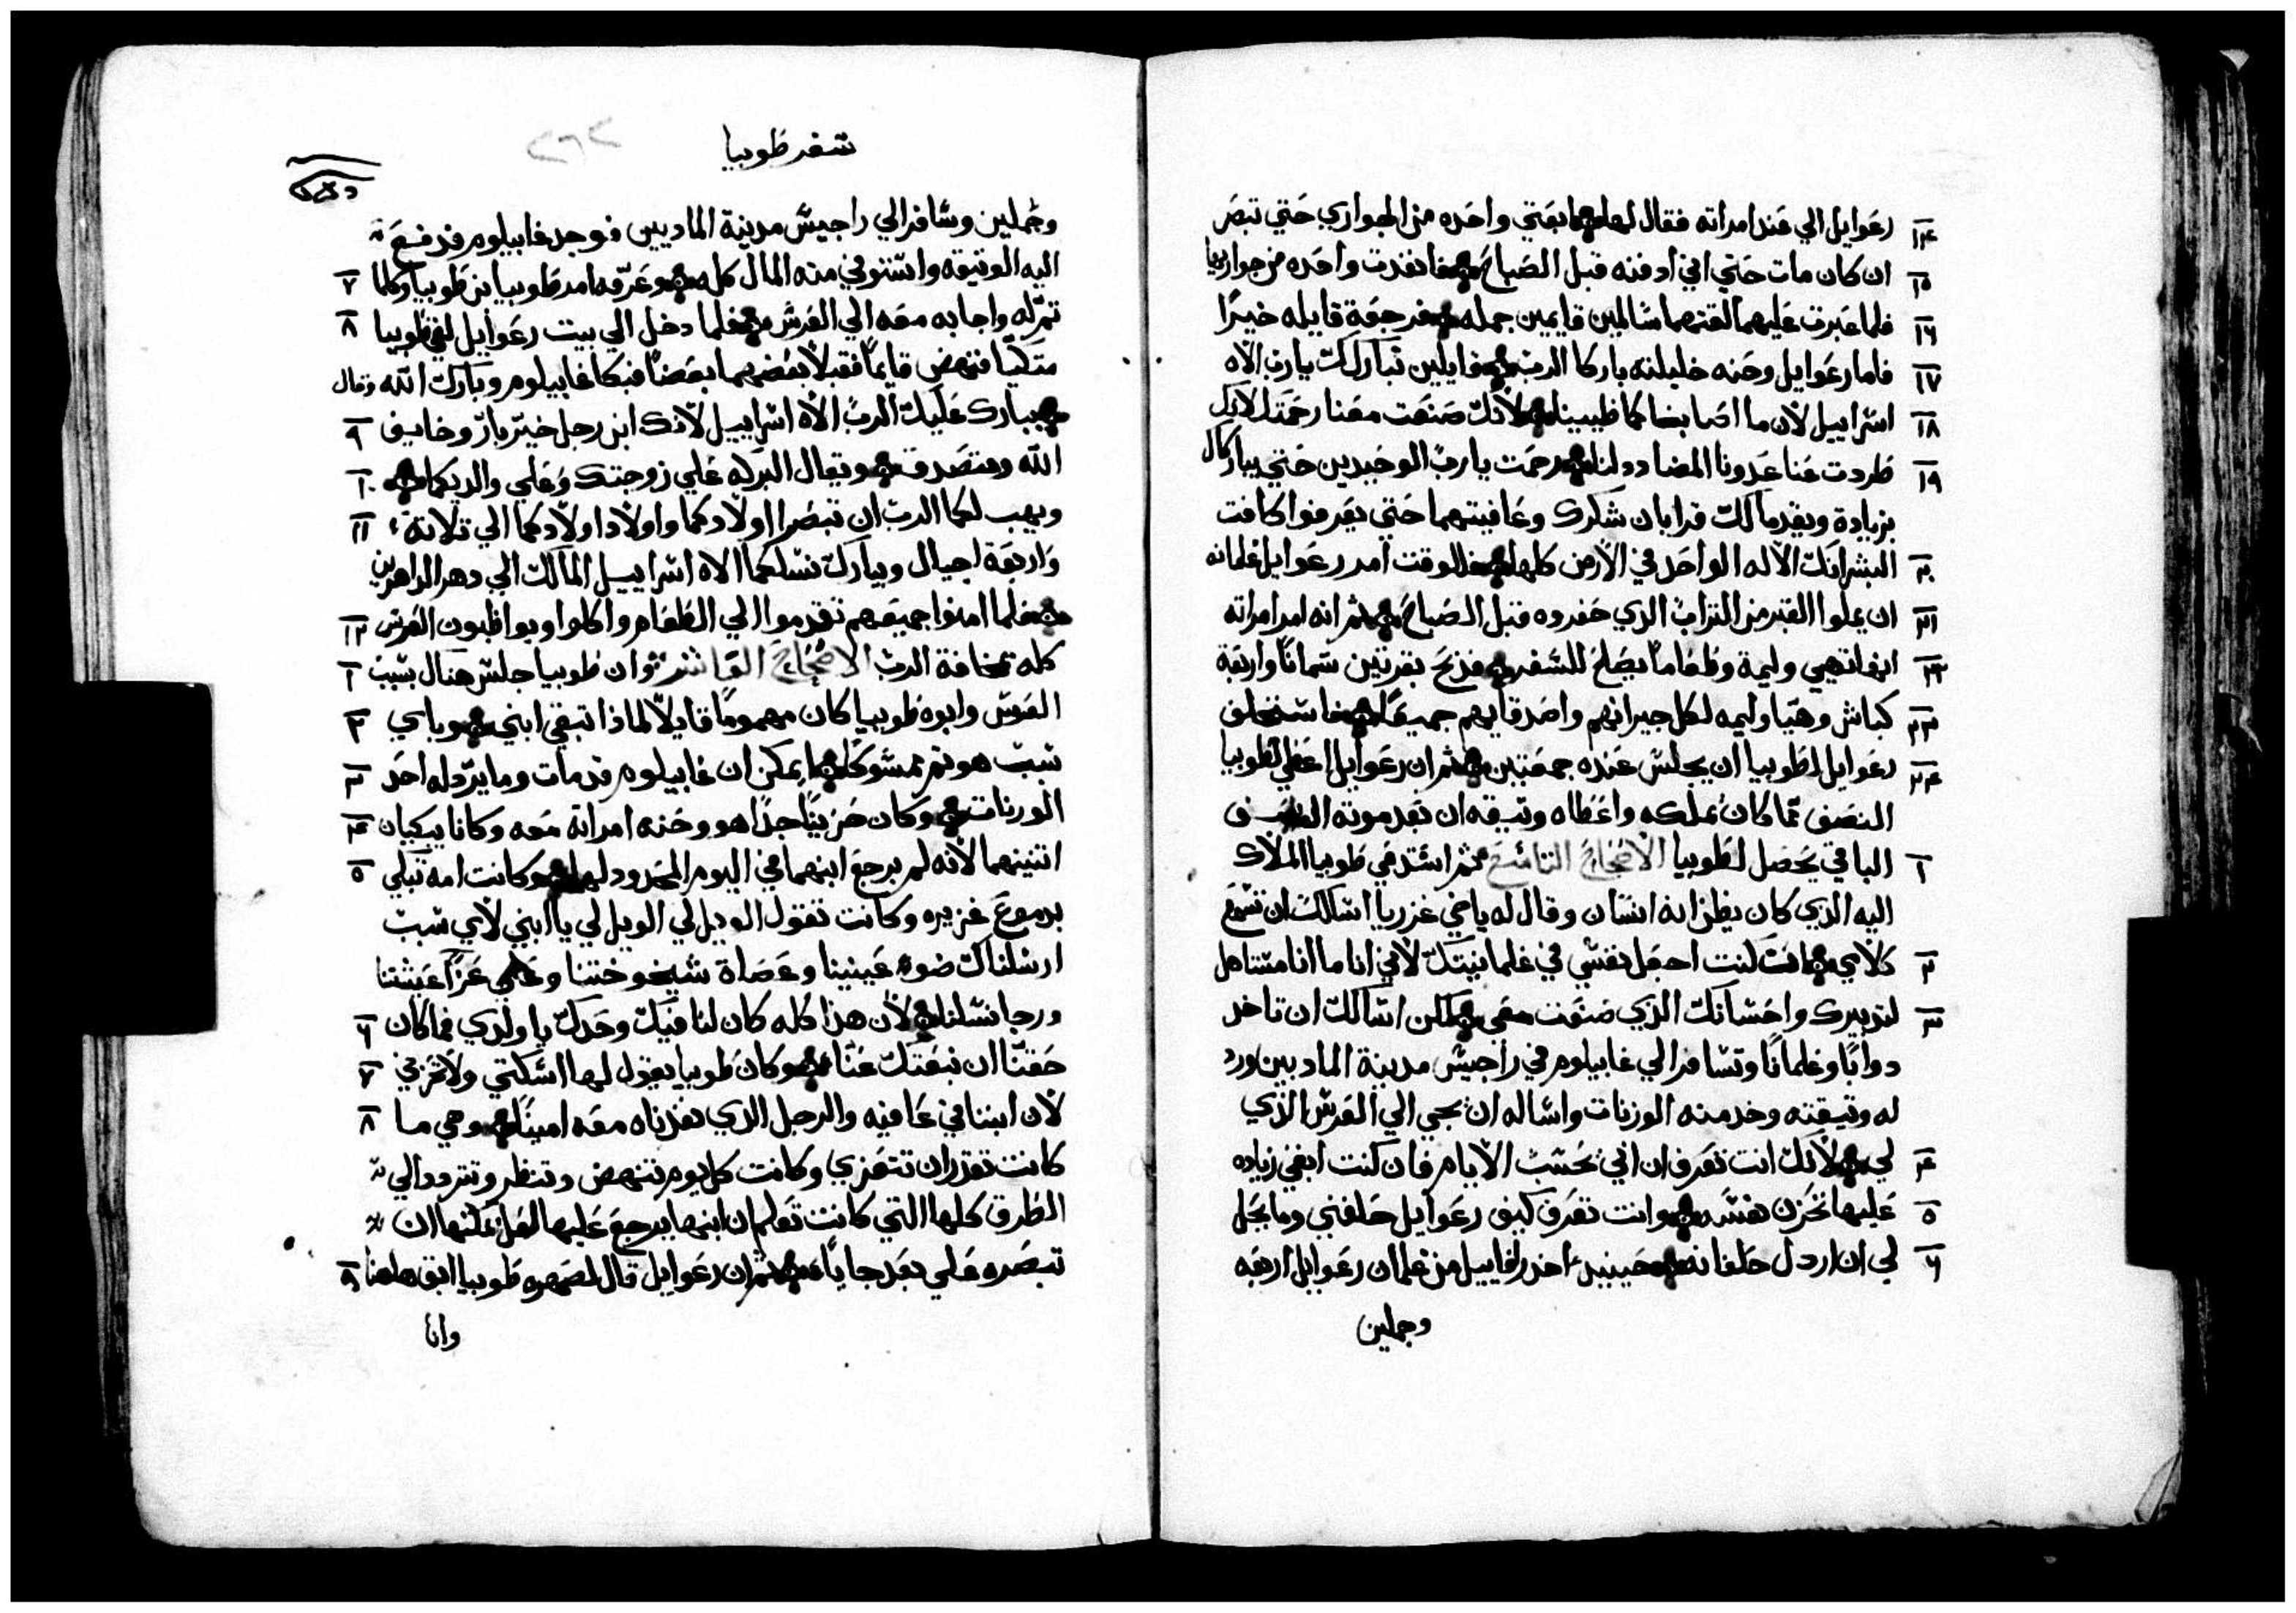 ١٤ رعوايل الي عند امراته فقال لها ابعتي واحده من الجواري حتي تبصر
١٥ ان كان مات حتي اني ادفنه قبل الصباح فانفدت واحده من جواريها
١٦ فلما عبرت عليهما لقتهما سالمين قايمين جمله فرجعة قايله خيرًا
١٧ فاما رعوايل وحنه خليلته باركا الرب قايلين نبارك لك يارب الاه
١٨ اسراييل لان ما اصابنا كما ظنينا لانك صنعت معنا رحمتك لانك
١٩ طردت عنا عدونا المضادد لنا رحمت يارب الوحيدين حتي يباركاك
بزيادة ويقدما لك قرابان شكرك وعافيتهما حتي يعرفوا كافت
٢٠ البشر انك الاله الواحد في الارض كلها فللوقت امر رعوايل غلمانه
٢١ ان يملوا القبر من التراب الذي حفروه قبل الصباح ثم انه امر امراته
٢٢ انها تهيي وليمة وطعاماً يصلح للسفر فذبح بقرتين سماناً واربعة
٢٣ كباش وهيا وليمه لكل جيرانهم واصدقايهم جميعًا فاستحلف
٢٤ رعوايل لطوبيا ان يجلس عنده جمعتين ثم ان رعوايل اعطي لطوبيا
النصف مما كان يملكه واعطاه وثيقه ان بعد موته النصف
١ الباقي يحصل لطوبيا الاصحاح التاسع ثم استدعي طوبيا الملاك
اليه الذي كان يظن انه انسان وقال له ياخي عزريا اسالك ان تسمع
٢ كلامي ان كنت اجعل نفسي في غلمانيتك لاني انا ما انا مستاهل
٣ لتدبيرك واحسانك الذي صنعت معي لكن اسالك ان تاخد
دوابًا وغلمانًا وتسافر الي غابيلوم في راجيس مدينة الماديين ورد
له وثيقته وخد منه الوزنات واساله ان يجي الي العرس الذي
٤ لي لانك انت تعرف ان ابي يحسب الايام فان كنت ابقي زياده
٥ عليها تحزن نفسه وانت تعرف كيف رعوايل حلفني وما يحل
٦ لي ان اردل حلفانه حينيد اخد رافاييل من غلمان رعوايل اربعه
وجملين
سفر طوبيا
٢٦٢
وجملين وسافر الي راجيس مدينة الماديين فوجد غابيلوم فدفع
اليه الوثيقه واستوفي منه المال كله وعرفه امر طوبيا بن طوبيا وكلما ٧
تم له واجابه معه الي العرس فلما دخل الي بيت رعوايل لقي طوبيا ٨
متكيًا فنهض قايمًا فقبلا بعضهما بعضًا فبكا غابيلوم وبارك الله وقال
يبارك عليك الرب الاه اسراييل لانك ابن رجل خير بار وخايف ٩
الله ومتصدق وتقال البركه علي زوجتك وعلي والديكما ١٠
ويهب لكما الرب ان تبصرا اولادكما واولاد اولادكما الي تلاتة ١١
واربعة اجيال ويبارك نسلكما الاه اسراييل المالك الي دهر الداهرين
فلما امنوا جميعهم تقدموا الي الطعام واكلوا ويواظبون العرس ١٢
كله بمخافة الرب الاصحاح العاشر وان طوبيا جلس هنال بسبب ١
العرس وابوه طوبيا كان مهمومًا قايلًا لماذا تبقي ابني وباي ٢
سبب هو تم ممسوكًا ايمكن ان غابيلوم قد مات وما يرد له احد ٣
الوزنات وكان حزينًا جدًا هو وحنه امراته معه وكانا يبكيان ٤
اتنينهما لانه لم يرجع ابنهما في اليوم المحدود لهما وكانت امه تبكي ٥
بدموع غزيره وكانت تقول الويل لي الويل لي يا ابني لاي سبب
ارسلناك ضوء عينينا وعصاة شيخوختنا وعزا عيشتنا
ورجا نسلنا لان هذا كله كان لنا فيك وحدك يا ولدي فما كان ٦
حقنا ان نبعتك عنا وكان طوبيا يقول لها اسكتي ولا تحزني ٧
لان ابننا في عافيه والرجل الذي نفدناه معه امينًا وهي ما ٨
كانت تقدر ان تتعزي وكانت كل يوم تنهض وتنظر وتتردد الي
الطرق كلها التي كانت تعلم ان ابنها يرجع عليها لعل يمكنها ان
تبصره علي بعد جايًا ثم ان رعوايل قال لصهره طوبيا ابق هاهنا ٩
وانا